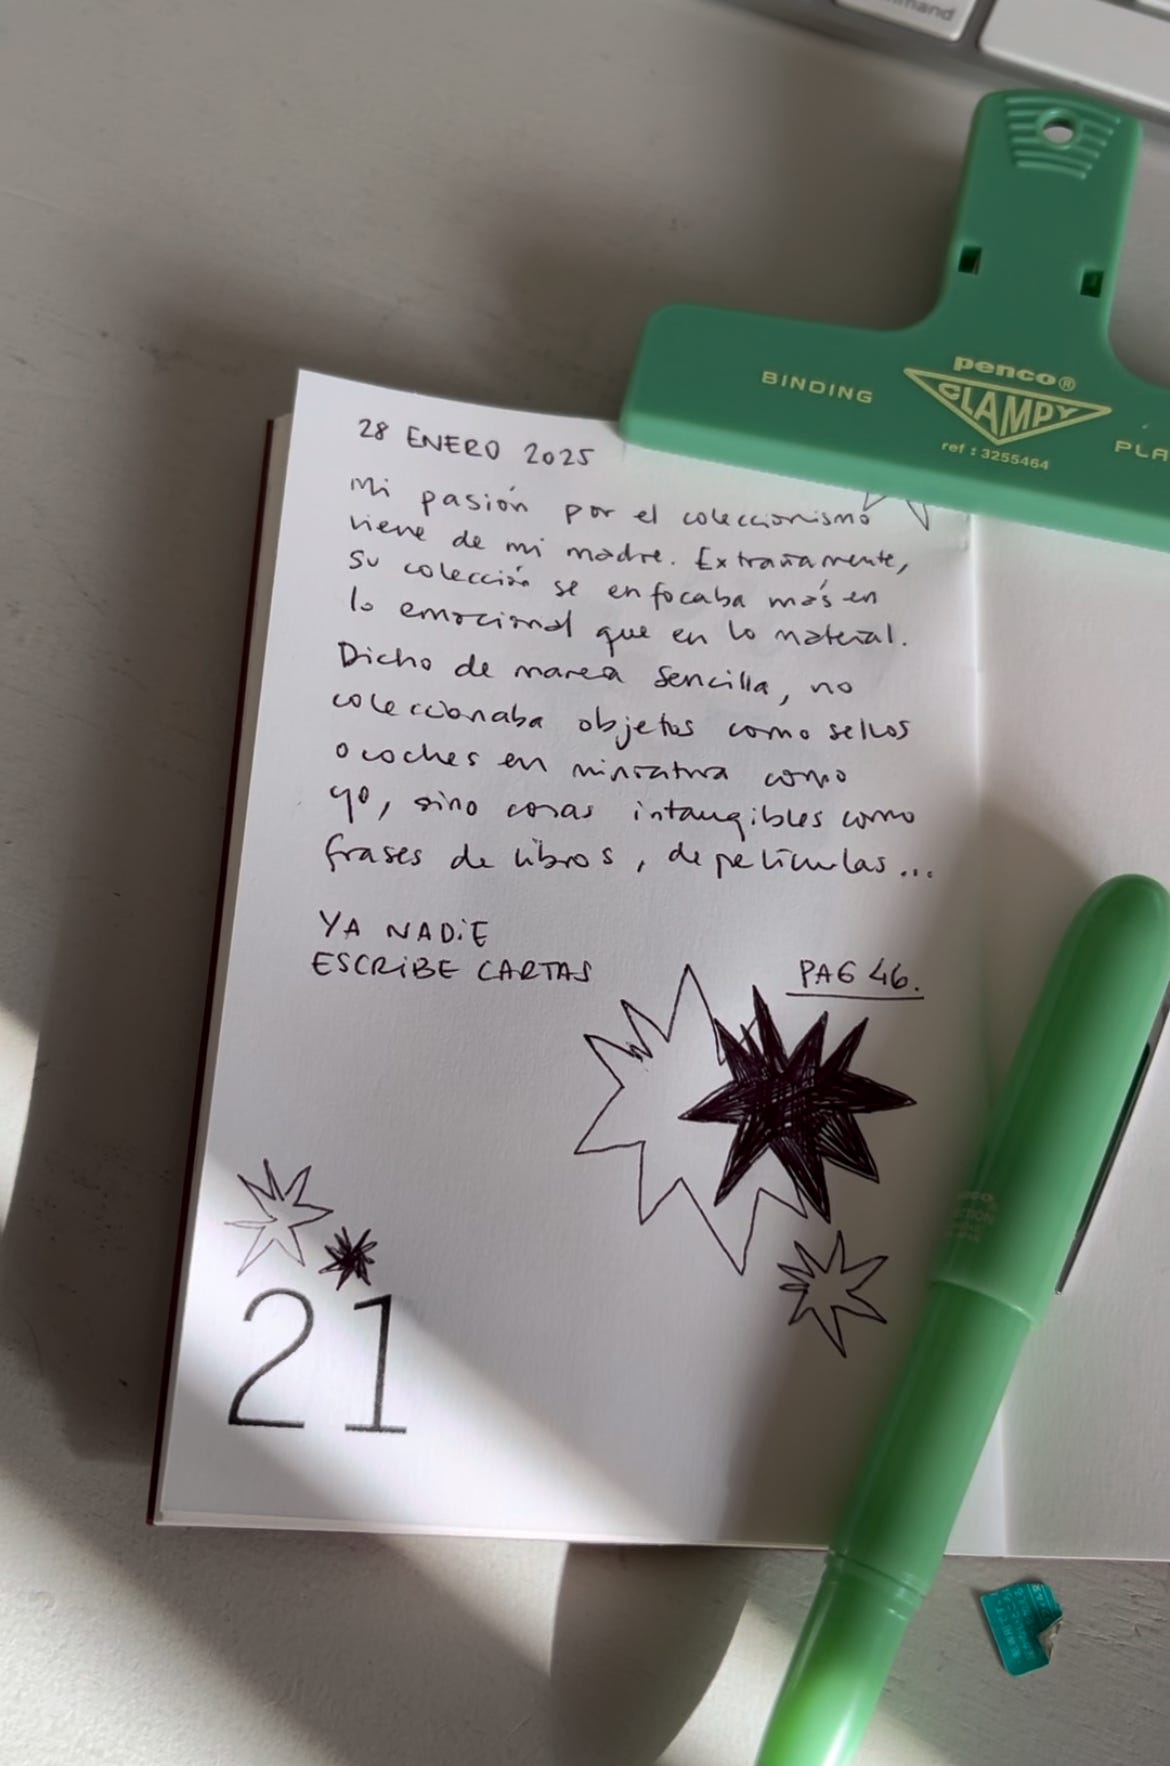 mmand
penco®
CLAMPY
BINDING
PLA
ref : 3255464
28 ENERO 2025
Mi pasión por el coleccionismo
viene de mi madre. Extrañamente,
su colección se enfocaba más en
lo emocional que en lo material.
Dicho de manera sencilla, no
coleccionaba objetos como sellos
o coches en miniatura como
yo, sino cosas intangibles como
frases de libros, de películas...
YA NADIE
ESCRIBE CARTAS
PAG 46.
21